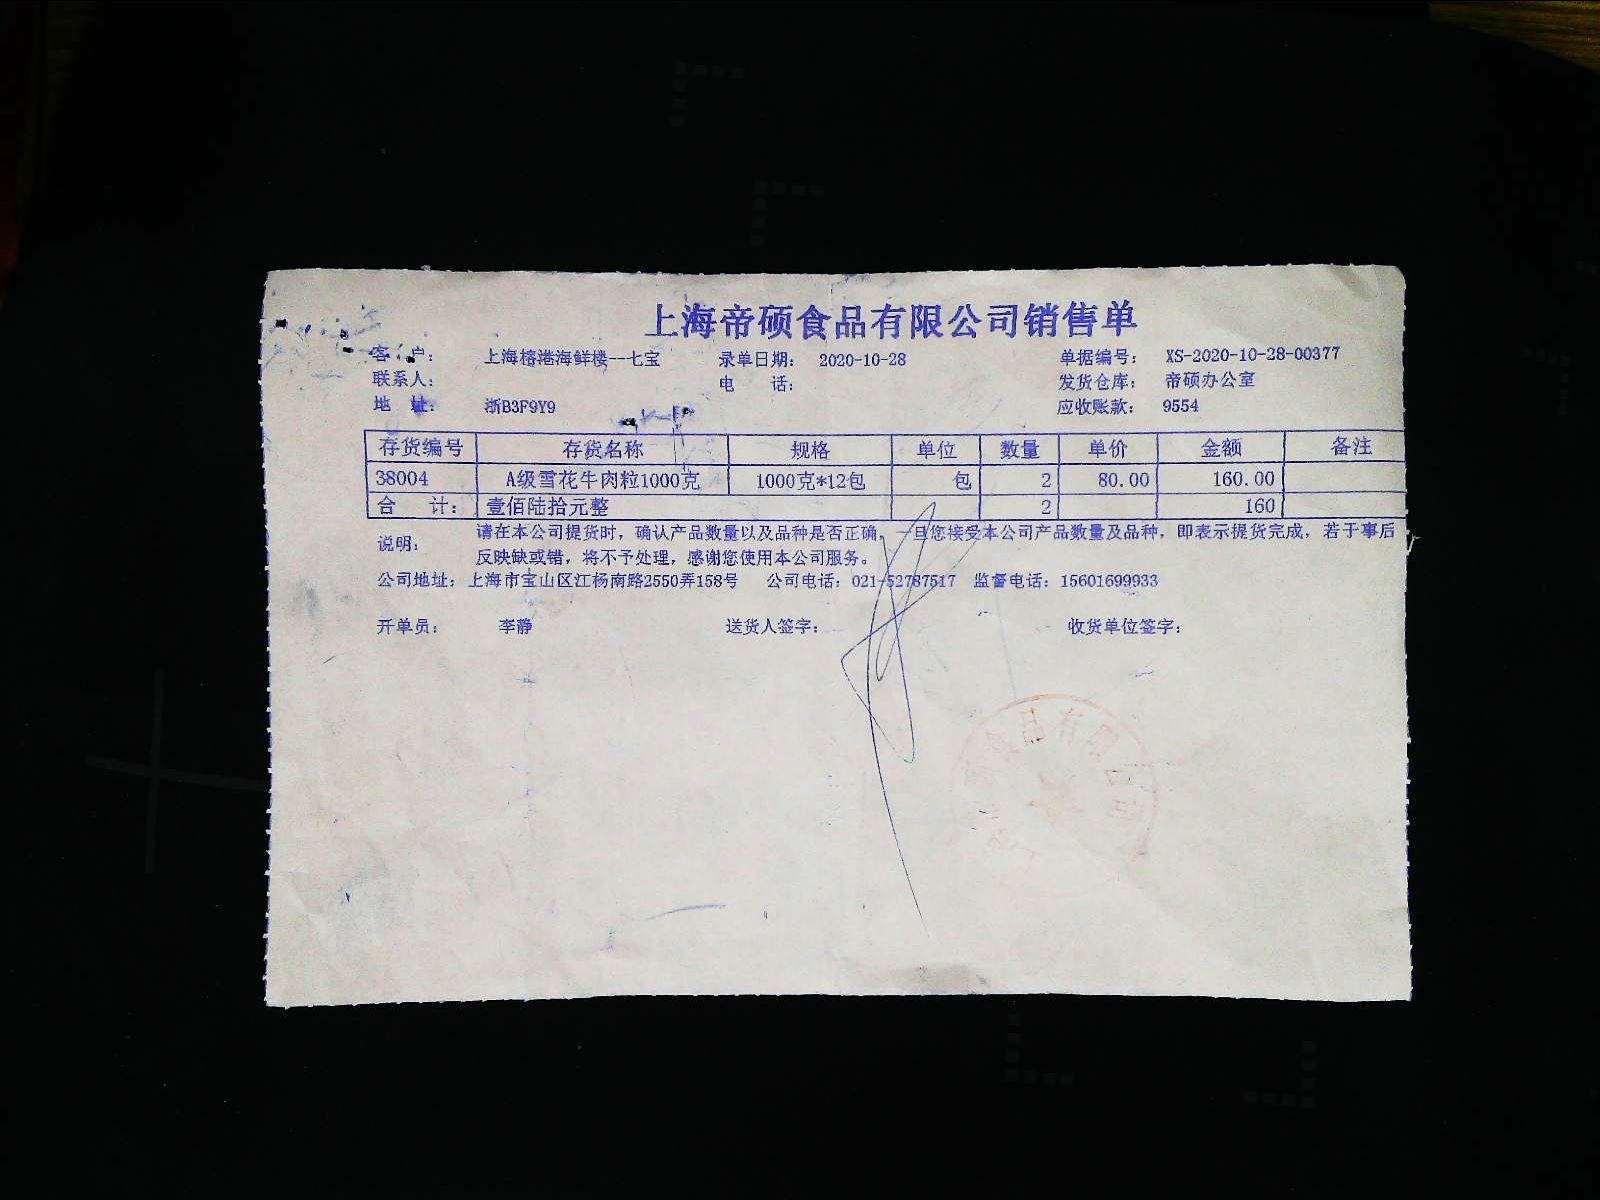 上海帝硕食品有限公司销售单
客 户： 上海榕港海鲜楼--七宝 录单日期： 2020-10-28 单据编号： XS-2020-10-28-00377
联系人： 电 话： 发货仓库： 帝硕办公室
地 址： 浙B3F9Y9 应收账款： 9554
存货编号 存货名称 规格 单位 数量 单价 金额 备注
38004 A级雪花牛肉粒1000克 1000克*12包 包 2 80.00 160.00
合 计： 壹佰陆拾元整 2 160
说明： 请在本公司提货时，确认产品数量以及品种是否正确，一旦您接受本公司产品数量及品种，即表示提货完成，若于事后
反映缺或错，将不予处理，感谢您使用本公司服务。
公司地址： 上海市宝山区江杨南路2550弄158号 公司电话：021-52787517 监督电话：15601699933
开单员： 李静 送货人签字： 收货单位签字：